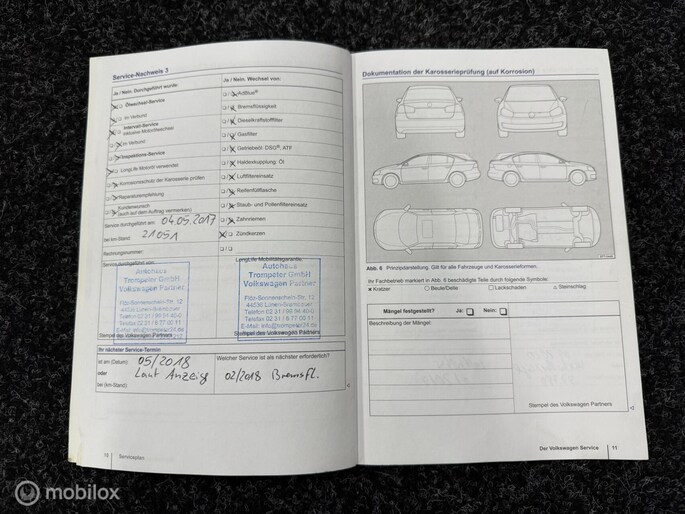 Service-Nachweis 3
Ja / Nein. Durchgeführt wurde:
Ölwechsel-Service
im Verbund
Intervall-Service
inklusive Motorölwechsel
im Verbund
Inspektions-Service
LongLife Motoröl verwendet
Korrosionsschutz der Karosserie prüfen
Reparaturempfehlung
Kundenwunsch
(auch auf dem Auftrag vermerken)
Service durchgeführt am: 04.05.2017
bei km-Stand: 21051
Rechnungsnummer:
Service durchgeführt von:
Autohaus
Trompeter GmbH
Volkswagen Partner
Stempel des Volkswagen Partners
Ja / Nein. Wechsel von:
AdBlue®
Bremsflüssigkeit
Dieselkraftstofffilter
Gasfilter
Getriebeöl: DSG®, ATF
Haldexkupplung: Öl
Luftfiltereinsatz
Reifenfüllflasche
Staub- und Pollenfiltereinsatz
Zahnriemen
Zündkerzen
LongLife Mobilitätsgarantie:
Autohaus
Trompeter GmbH
Volkswagen Partner
Stempel des Volkswagen Partners
Ihr nächster Service-Termin
ist am (Datum): 05/2018
oder Laut Anzeige
bei (km-Stand):
Welcher Service ist als nächster erforderlich?
02/2018 Bremsfl.
10 Serviceplan
Dokumentation der Karosserieprüfung (auf Korrosion)
Abb. 6 Prinzipdarstellung. Gilt für alle Fahrzeuge und Karosserieformen.
Ihr Fachbetrieb markiert in Abb. 6 beschädigte Teile durch folgende Symbole:
× Kratzer ○ Beule/Delle □ Lackschaden ◇ Steinschlag
Mängel festgestellt? Ja: Nein:
Beschreibung der Mängel:
Stempel des Volkswagen Partners
Der Volkswagen Service 11
mobilox